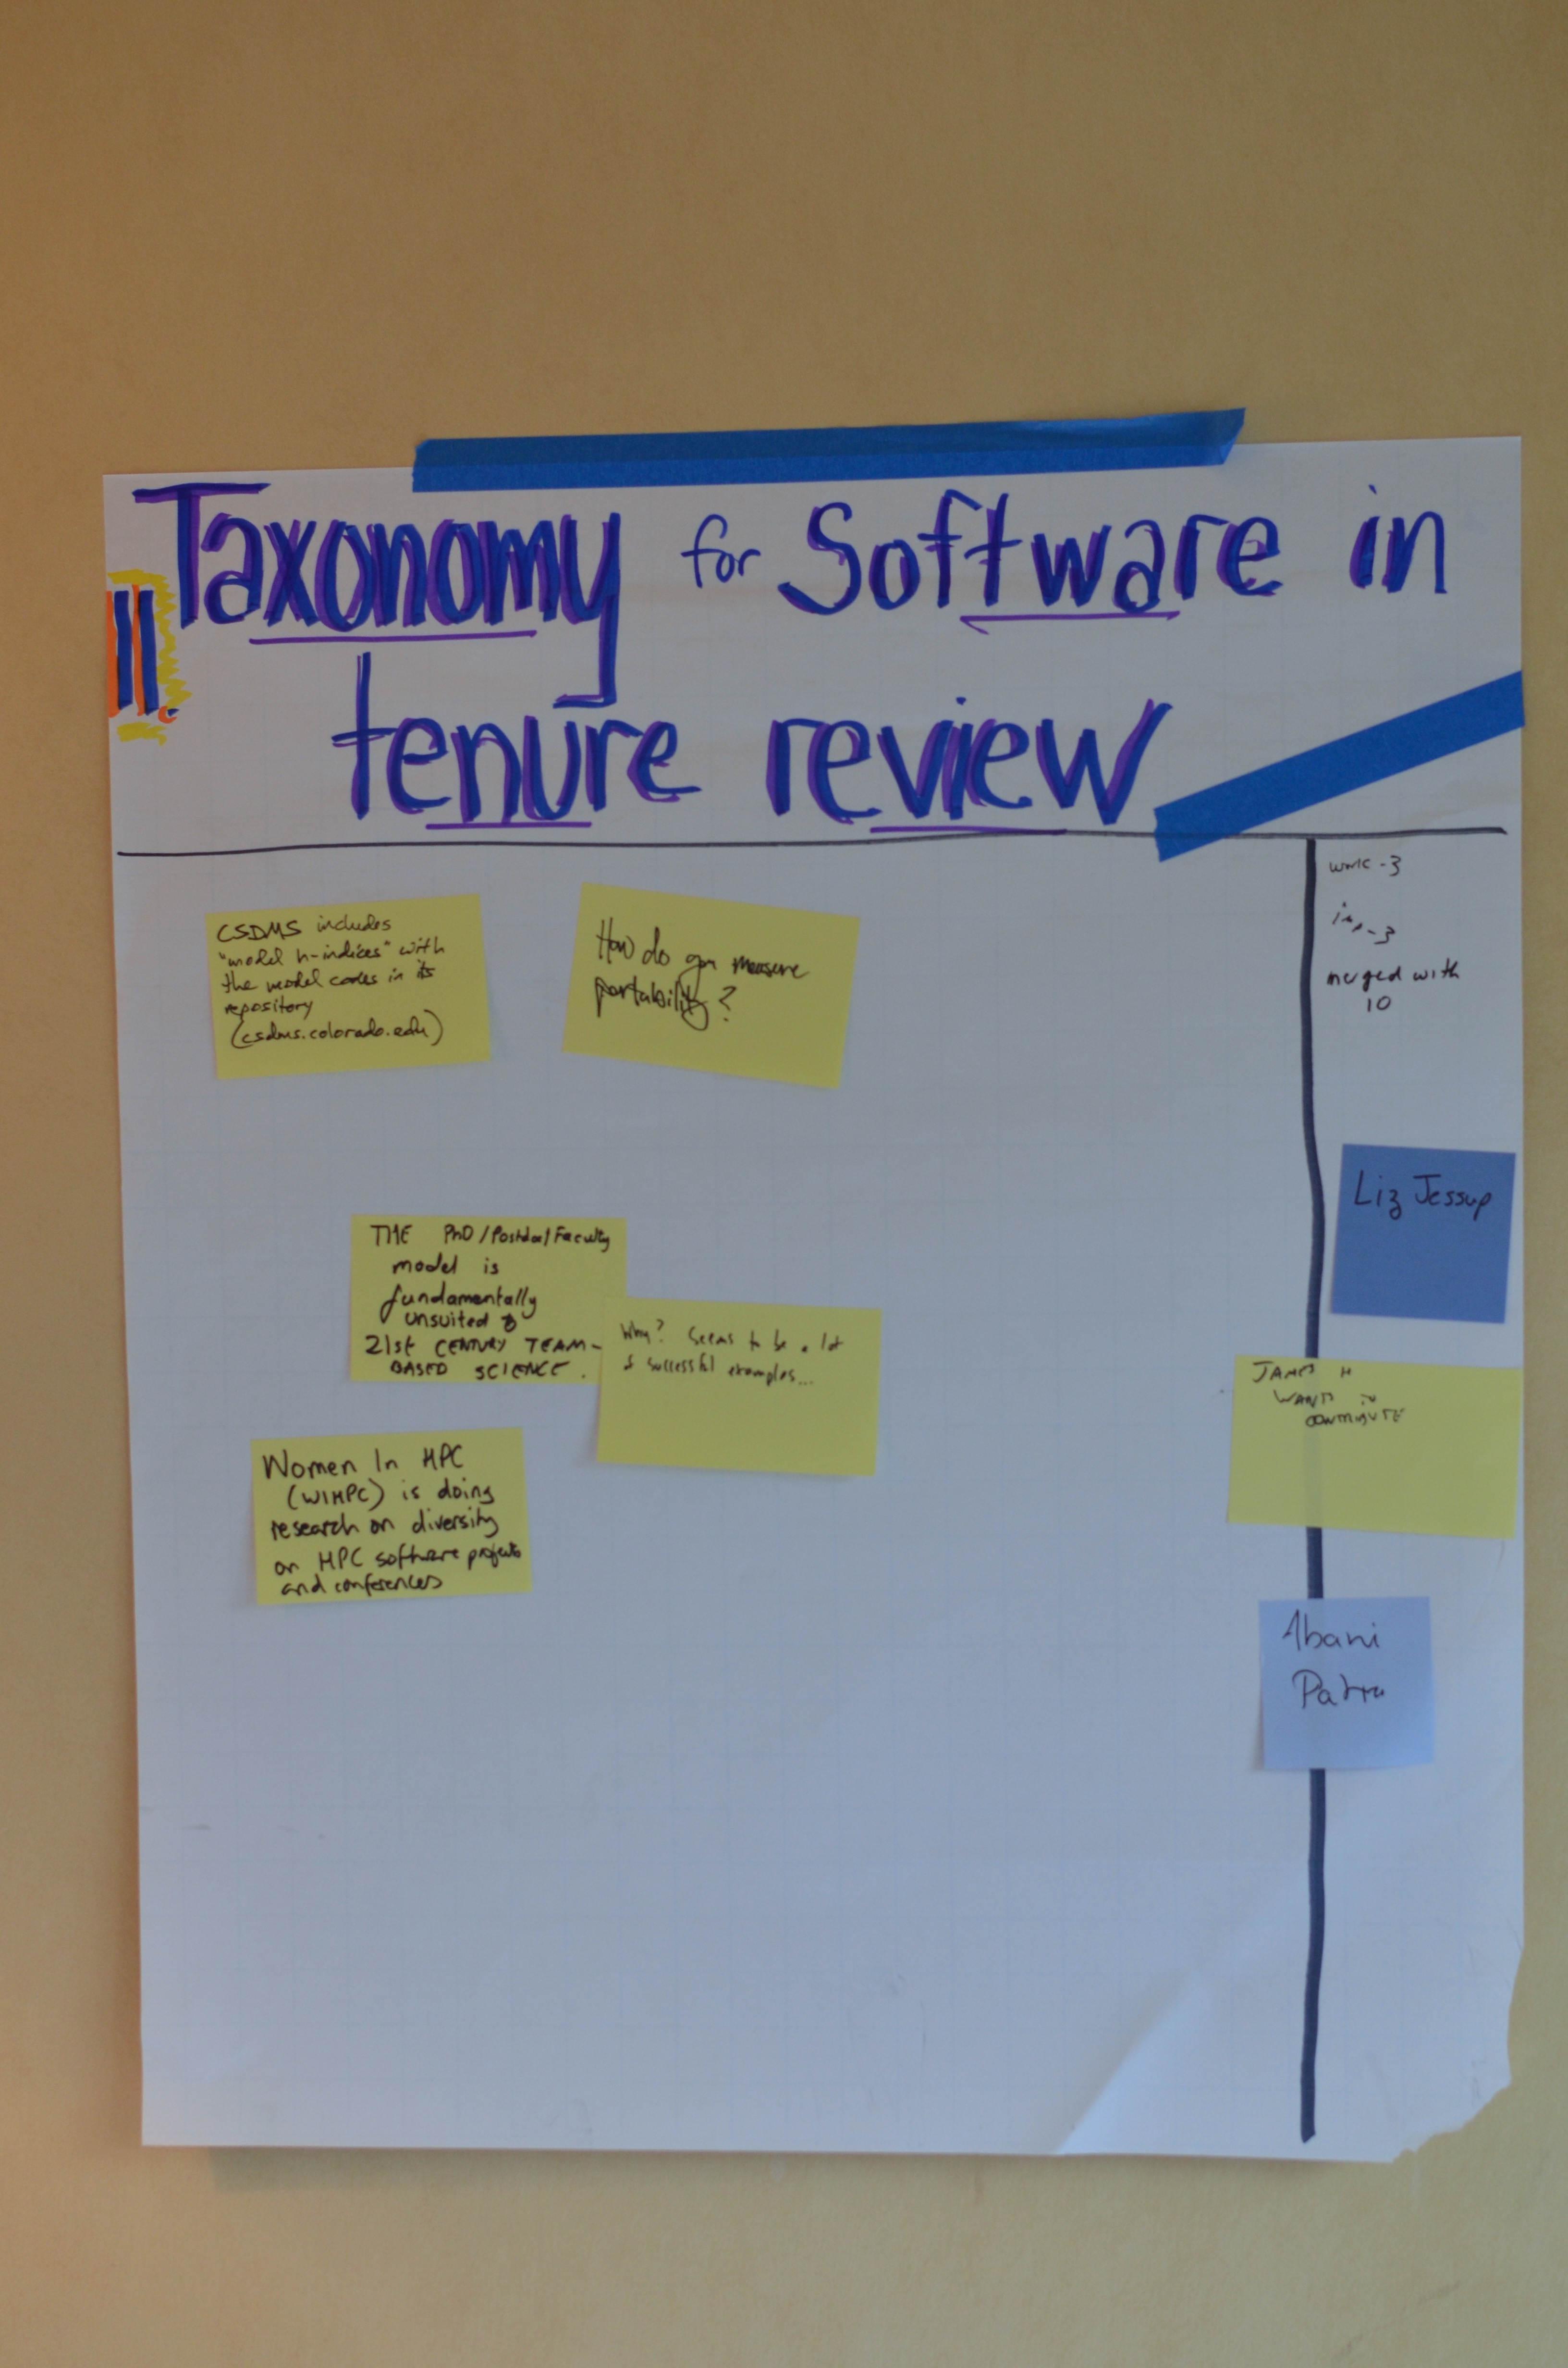 11. Taxonomy for Software in
tenure review
CSDMS includes
"model h-indices" with
the model codes in its
repository
(csdms.colorado.edu)
How do you measure
portability?
THE PhD/Postdoc/Faculty
model is
fundamentally
unsuited to
21st CENTURY TEAM-
BASED SCIENCE.
Why? Seems to be a lot
of successful examples...
Women In HPC
(WIHPC) is doing
research on diversity
on HPC software projects
and conferences
work - 3
imp - 3
merged with
10
Liz Jessup
JAMES H
WANTS TO
CONTRIBUTE
Abani
Patra